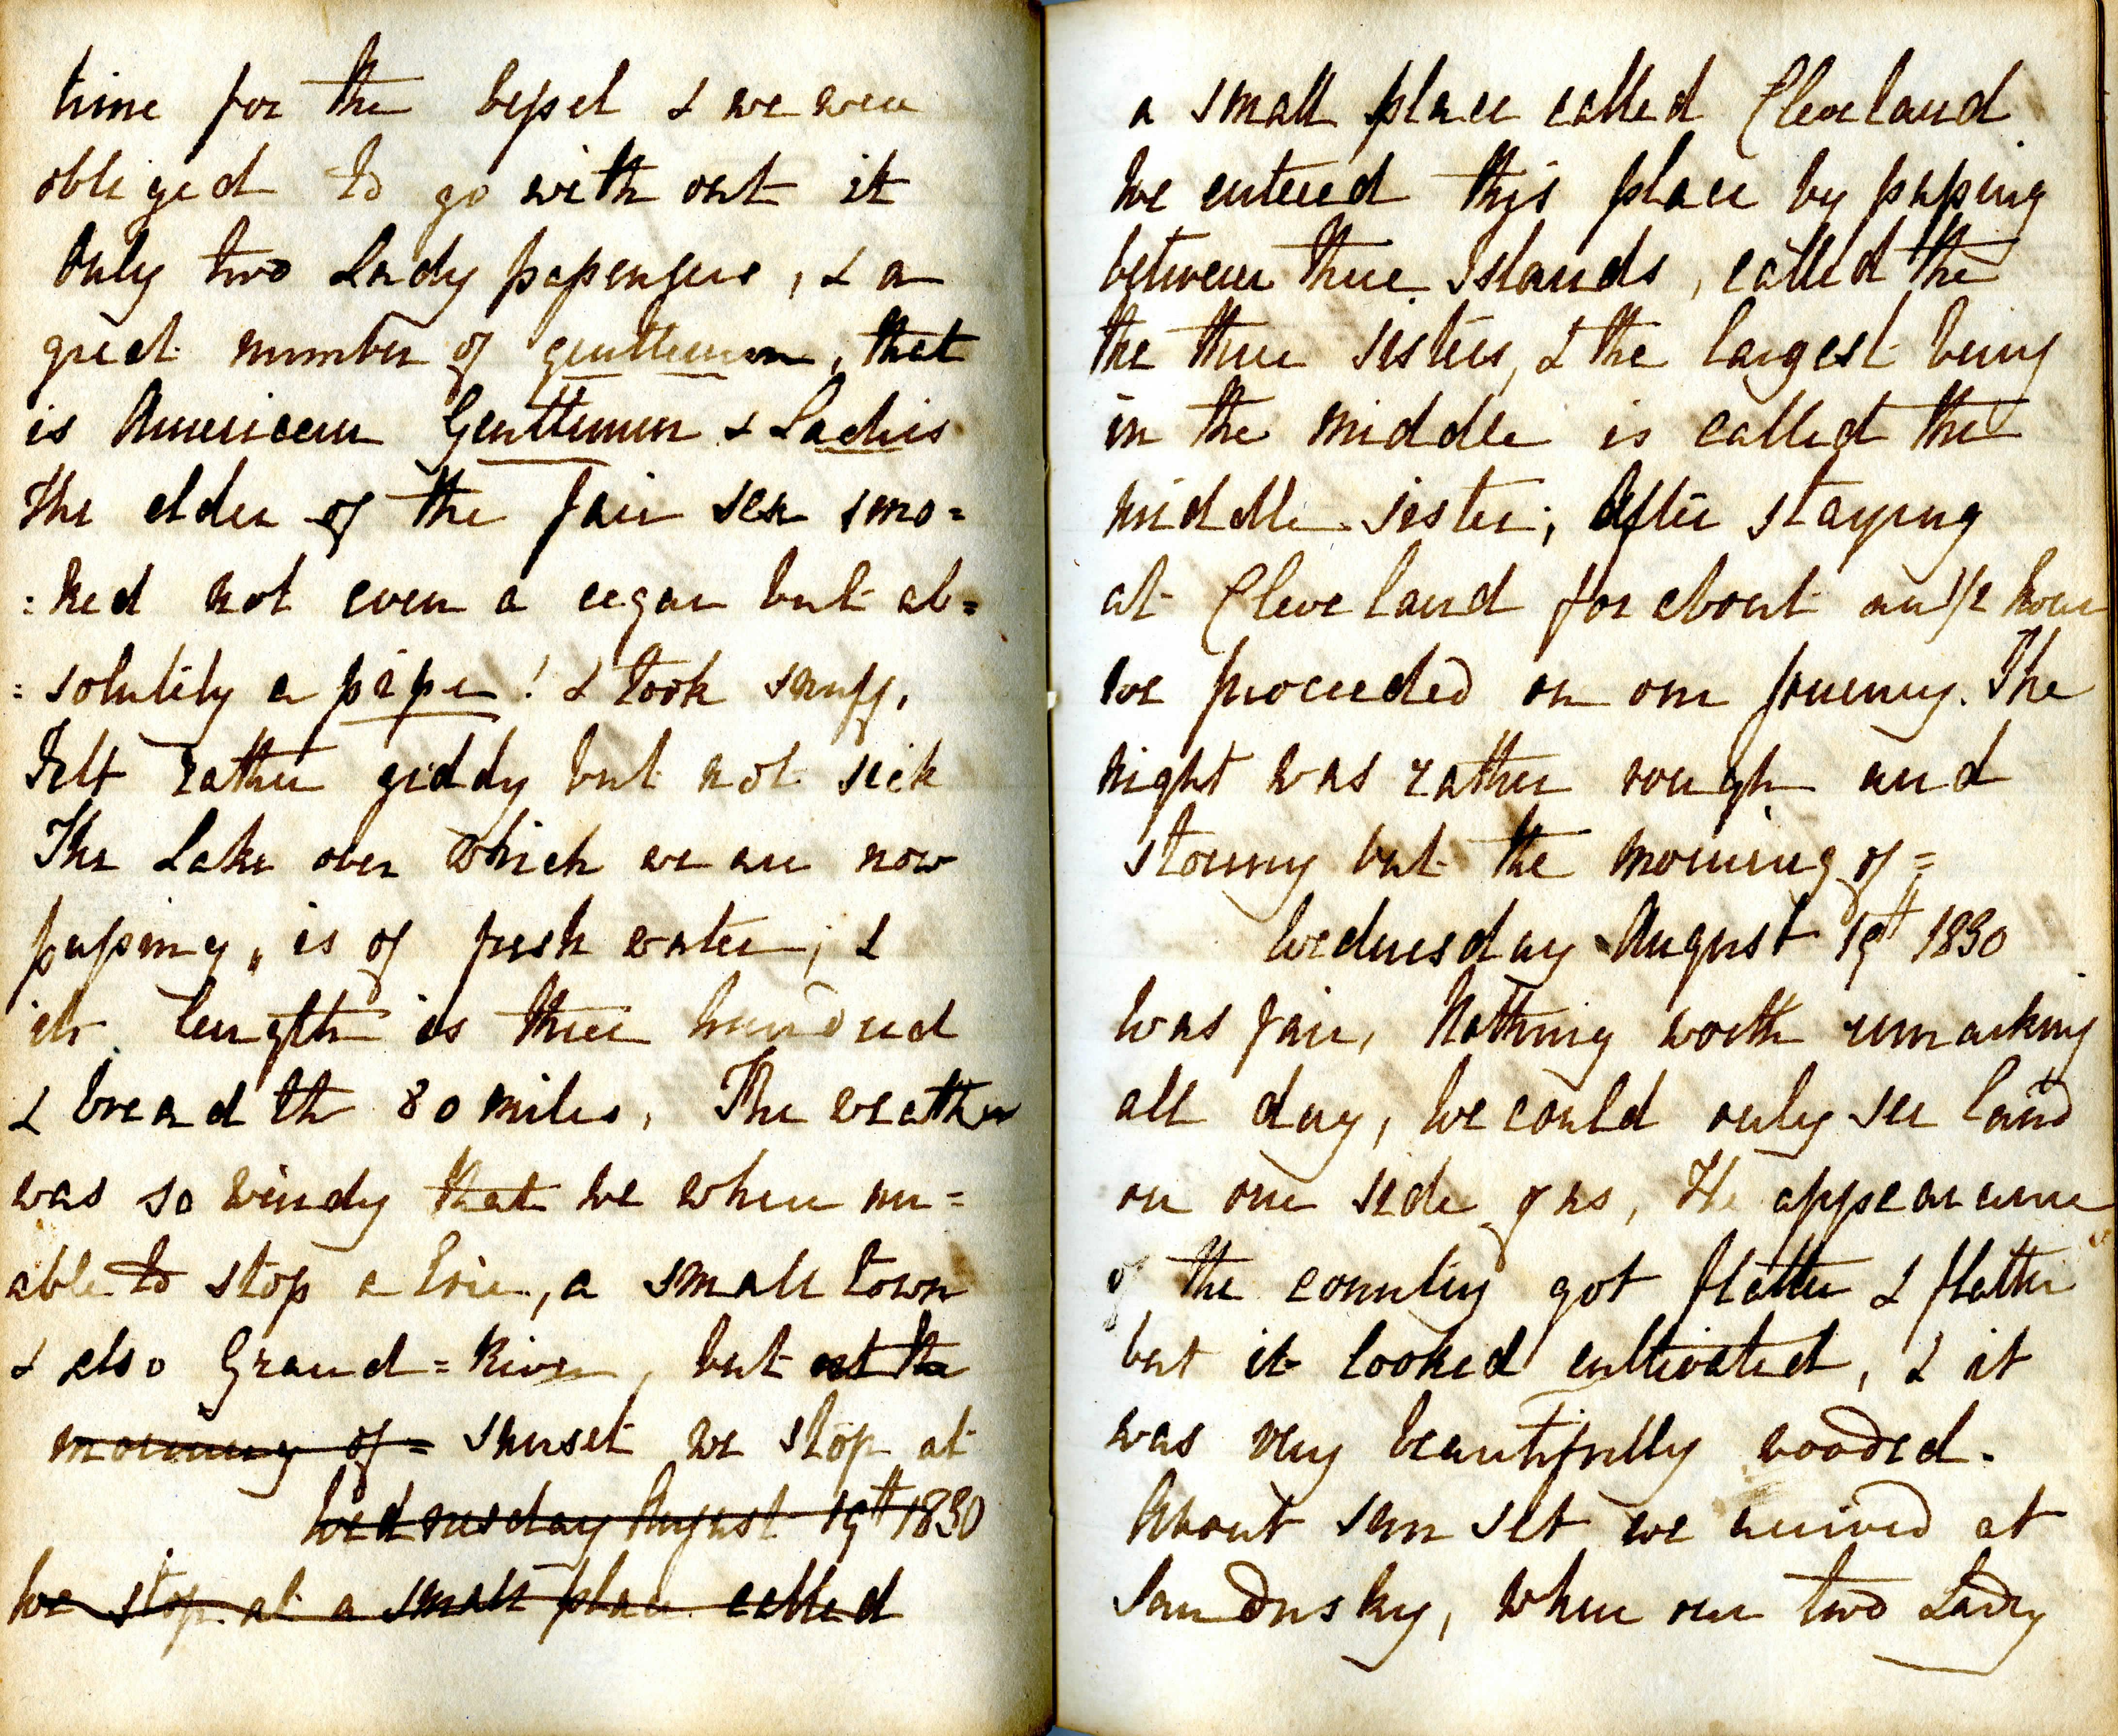 time for the vessel & we were
obliged to go with out it
Only two Lady passengers, & a
great number of gentlemen, that
is American Gentlemen & Ladies
The elder of the fair sex smo=
=ked not even a cegar but ab=
=solutily a pipe! & took snuff.
Felt rather giddy but not sick
The Lake over which we are now
passing, is of fresh water; &
its length is three hundred
& breadth 80 miles. The weather
was so windy that we where un=
able to stop a Erie, a small town
& also Grand=River, but at the
morning of= sunset we stop at
Wednesday August 19th 1830
We stop at a small place called
a small place called Cleveland
We entered this place by passing
between three Islands, called the
the three sisters, & the largest being
in the middle is called the
middle sister; After staying
at Cleveland for about an 1/2 hour
we proceeded on our journey. The
night was rather rough and
stormy but the morning of=
Wednesday August 19th 1830
was fair, Nothing worth remarking
all day, We could only see land
on one side of us, The appearance
of the country got flatter & flatter
but it looked cultivated, & it
was very beautifully wooded.
About sun set we arrived at
Sandusky, where our two Lady